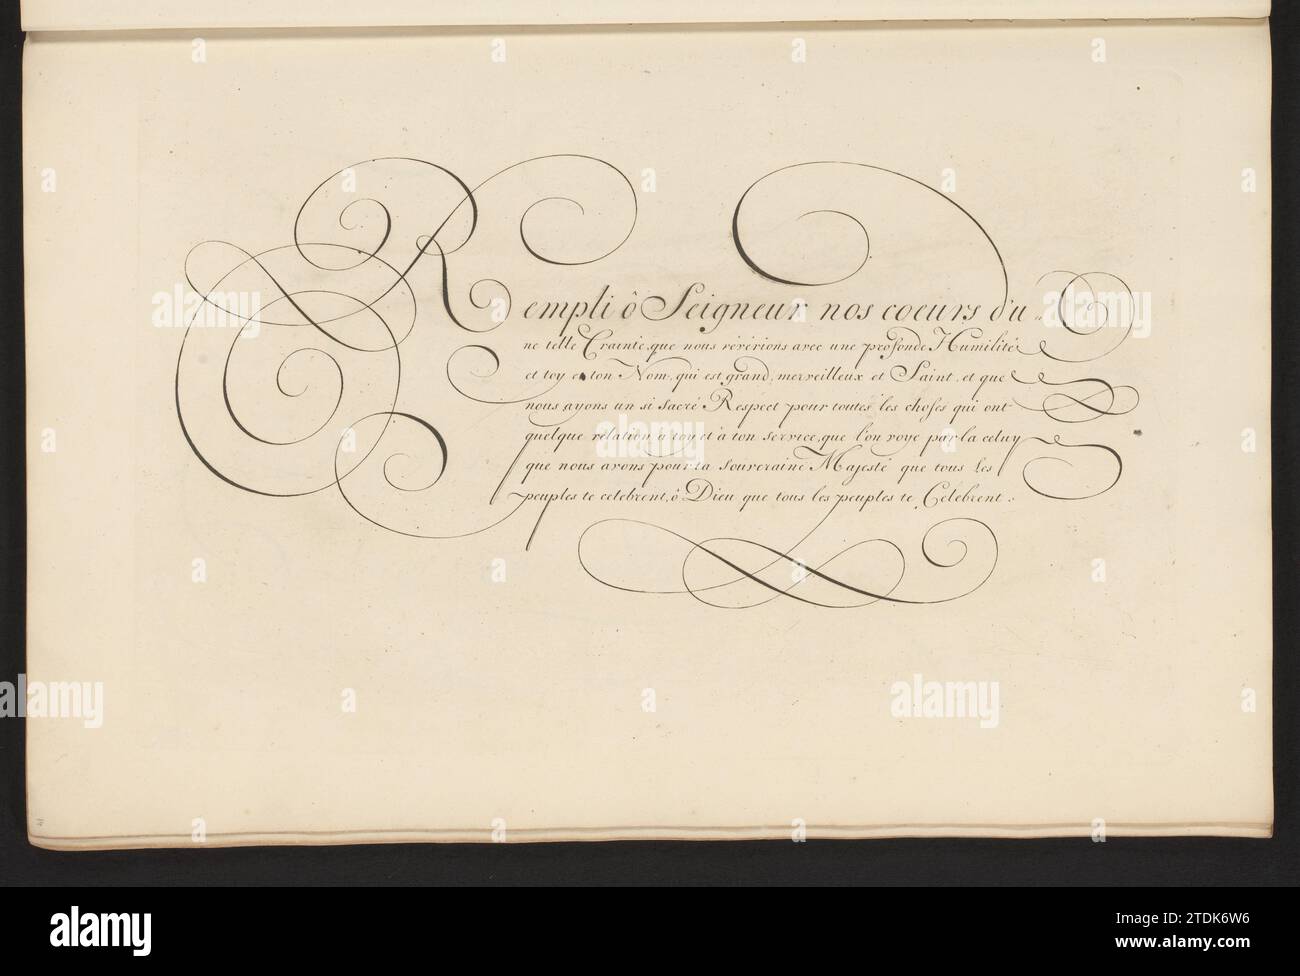 Rempli ô Seigneur nos coeurs d'u=
ne telle Crainte, que nous révérions avec une profonde Humilité
et toy et ton Nom, qui est grand, merveilleux et Saint, et que
nous ayons un si sacré Respect pour toutes les choses qui ont
quelque relation a toy et à ton service, que l'on voye par la celuy
que nous avons pour ta Souveraine Majesté que tous les
peuples te celebrent, ô Dieu que tous les peuples te Célebrent.
alamy
Image ID: 2TDK6W6
www.alamy.com